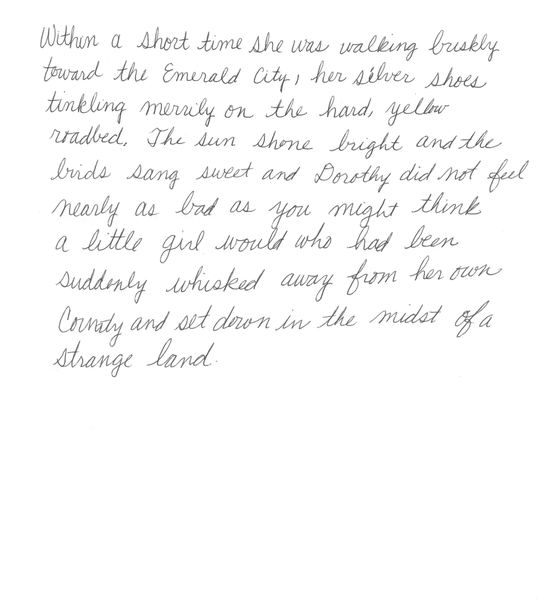 Within a short time she was walking briskly
toward the Emerald City, her silver shoes
tinkling merrily on the hard, yellow
roadbed. The sun shone bright and the
birds sang sweet and Dorothy did not feel
nearly as bad as you might think
a little girl would who had been
suddenly whisked away from her own
County and set down in the midst of a
strange land.